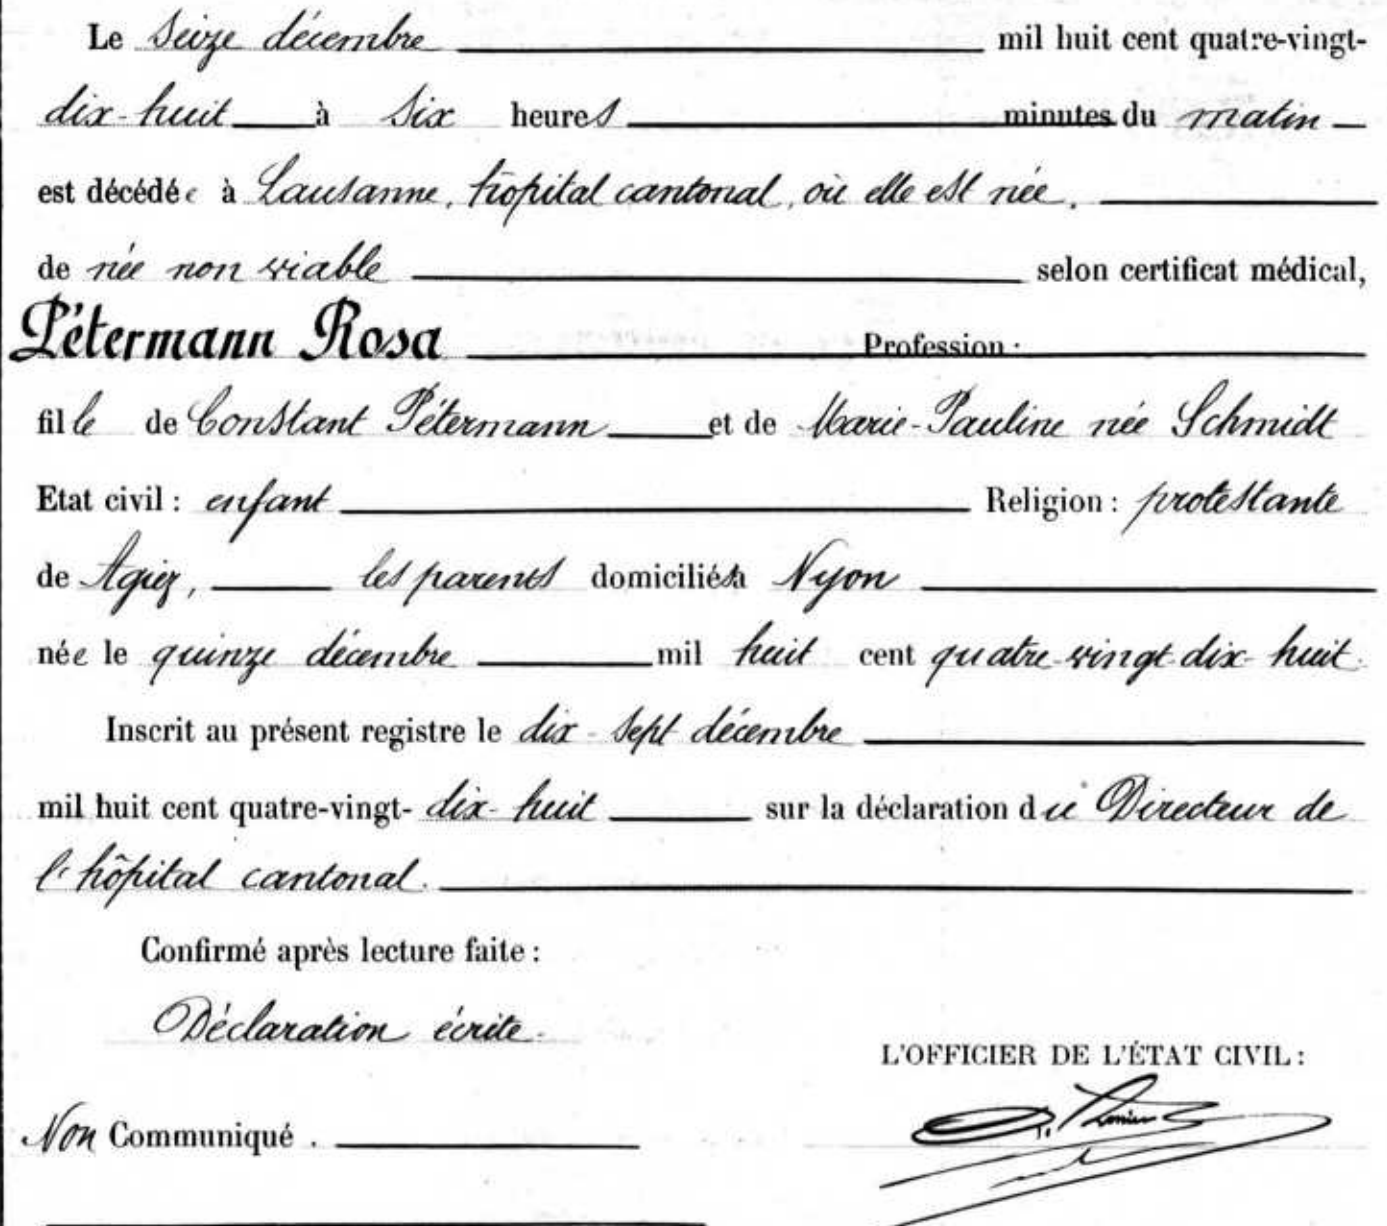 Le Seize décembre mil huit cent quatre-vingt-
dix-huit à six heures minutes du matin
est décédée à Lausanne, hôpital cantonal, où elle est née.
de née non viable selon certificat médical,
Pétermann Rosa Profession :
fille de Constant Pétermann et de Marie-Pauline née Schmidt
Etat civil : enfant Religion : protestante
de Agiez, les parents domiciliés à Nyon
née le quinze décembre mil huit cent quatre-vingt-dix-huit.
Inscrit au présent registre le dix-sept décembre
mil huit cent quatre-vingt-dix-huit sur la déclaration du Directeur de
l'hôpital cantonal.
Confirmé après lecture faite :
Déclaration écrite.
L'OFFICIER DE L'ÉTAT CIVIL :
Non Communiqué .